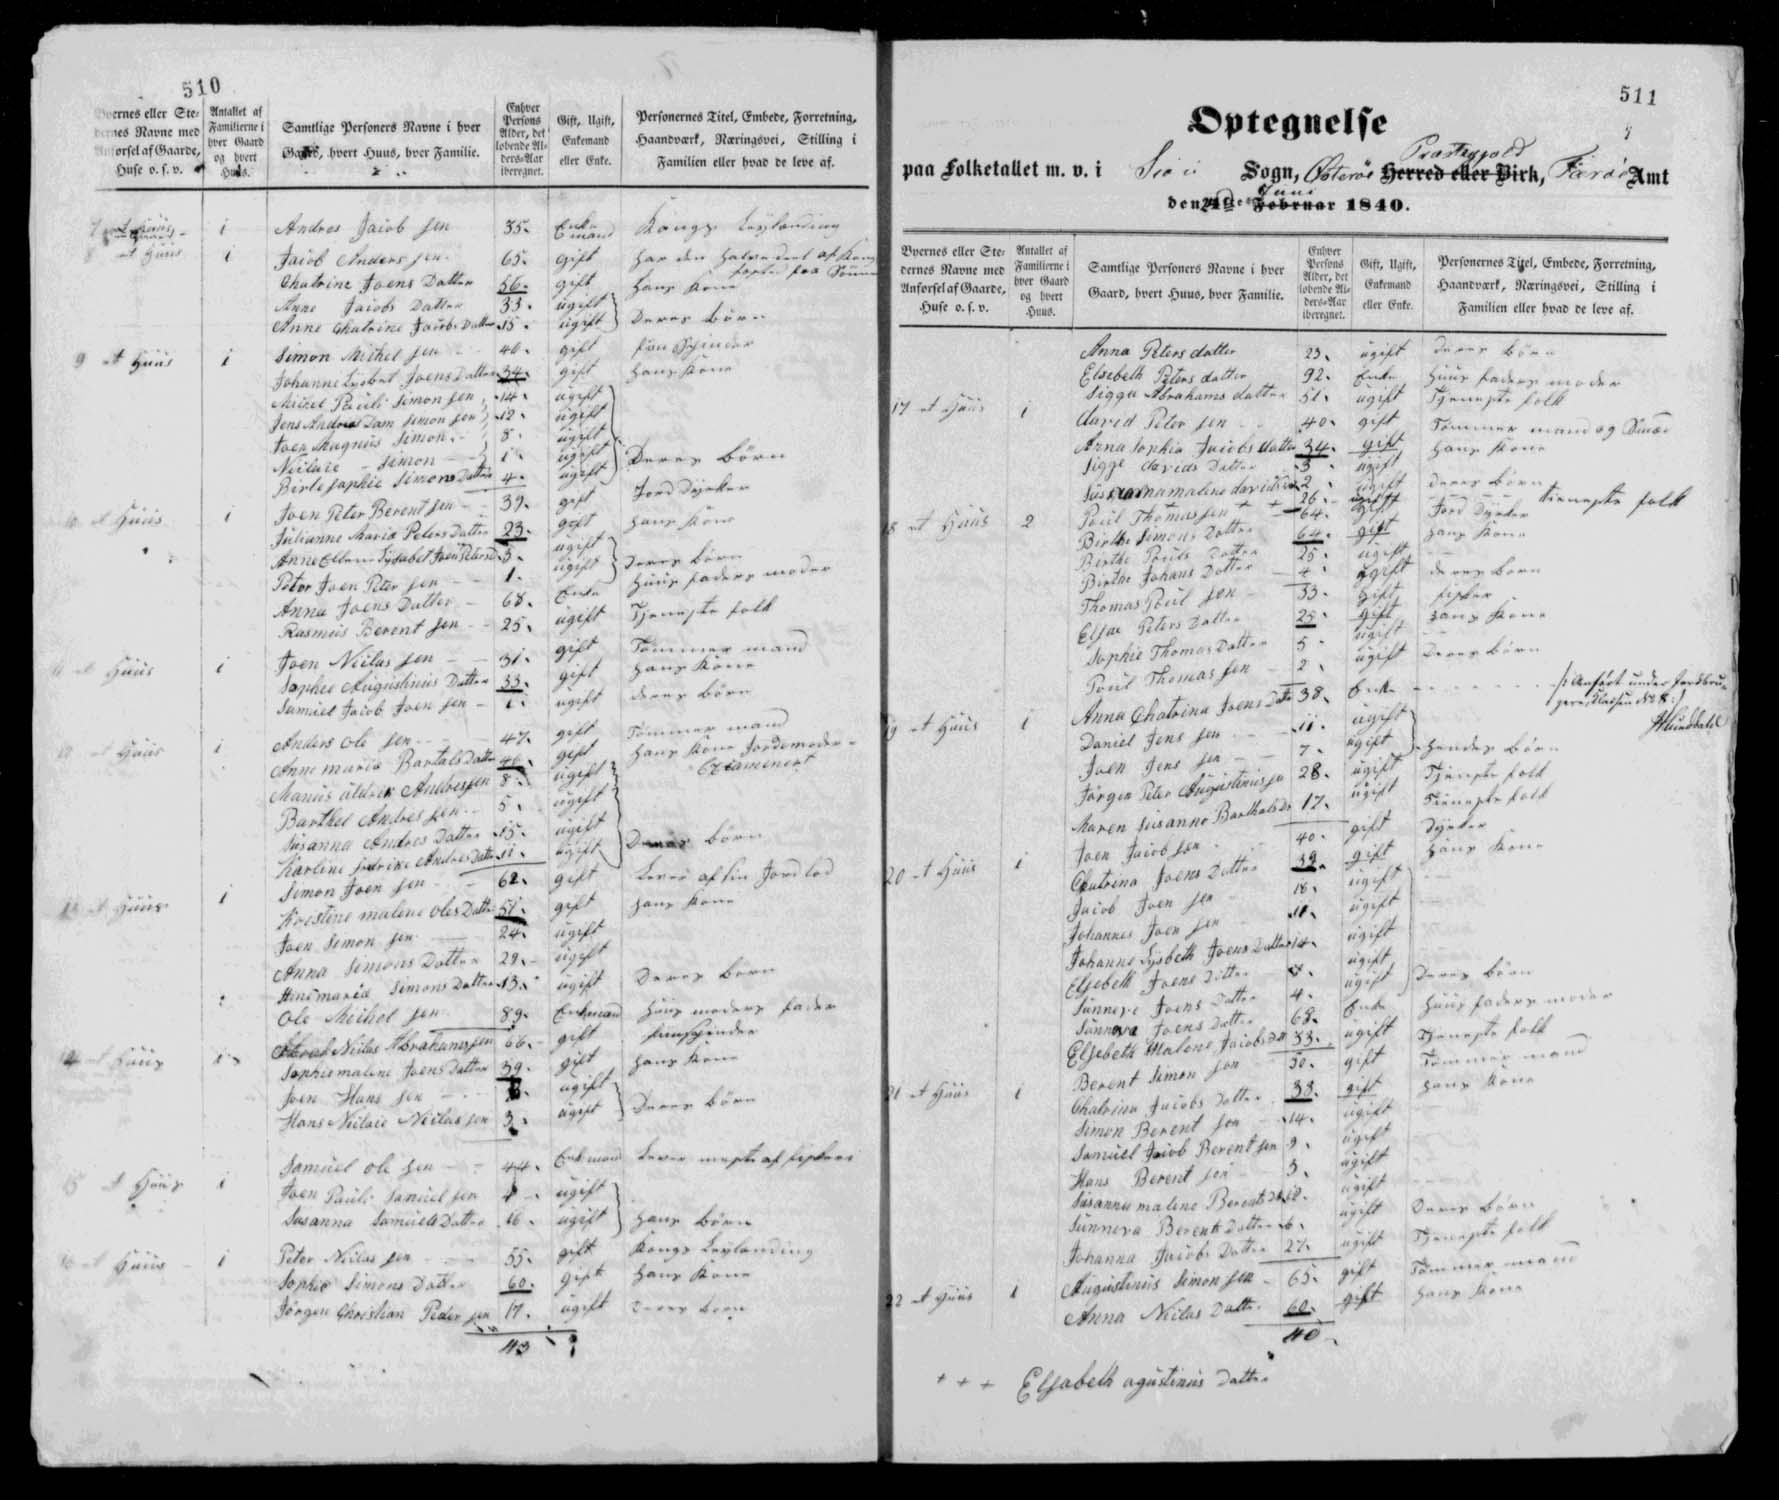 510
Byernes eller Ste-
dernes Navne med
Anførsel af Gaarde,
Huse o. s. v.
Antallet af
Familierne i
hver Gaard
og hvert
Huus.
Samtlige Personers Navne i hver
Gaard, hvert Huus, hver Familie.
Enhver
Persons
Alder, det
løbende Al-
ders-Aar
iberegnet.
Gift, Ugift,
Enkemand
eller Enke.
Personernes Titel, Embede, Forretning,
Haandværk, Næringsvei, Stilling i
Familien eller hvad de leve af.
i Andres Jacob sen 35. Enke mand Kongs
8 et Huus i Jacob Anders sen 65. gift har den halve deel af
Chatrine Joens Datter 56. gift hans Kone
Anne Jacobs Datter 33. ugift
Anne Chatrine Jacobs Datter 15. ugift Deres börn
9 et Huus i Simon Michel sen 40. gift
Johanne Lysbet Joens Datter 34. gift hans Kone
Michel Pauli Simon sen 14. ugift
Jens Andreas Dam Simon sen 12. ugift
Joen Magnus Simon 8. ugift
Niclaie Simon 1. ugift Deres börn
Birte Sophie Simons Datter 4. ugift
10 et Huus i Joen Peter Berent sen 39. gift Jord Dyrker
Julianne Maria Peters Datter 23. gift hans Kone
Anne Ellene Lysabet Joen Peters D 3. ugift
Peter Joen Peter sen 1. ugift Deres börn
Anna Joens Datter 68. Enke Huus faders moder
Rasmus Berent sen 25. ugift Tjeneste folk
11 et Huus i Joen Niclas sen 31. gift Tømmer mand
Sophie Augustinus Datter 33. gift hans Kone
Samuel Jacob Joen sen 1. ugift deres börn
12 et Huus i Anders Ole sen 47. gift Tømmer mand
Anne maria Bartals Datter 46. gift hans Kone Jordemoder
Examenert
Manus Andressen 8. ugift
Barthel Andres sen 5. ugift
Susanna Andres Datter 15. ugift
Karline Andres Datter 11. ugift Deres börn
13 et Huus i Simon Joen sen 62. gift Lever af sin Jord lod
Kirstine malene Oles Datter 51. gift hans Kone
Joen Simon sen 24. ugift
Anna Simons Datter 29. ugift
maria Simons Datter 13. ugift Deres börn
Ole Michel sen 89. Enkmand Huus moders fader
14 et Huus i Niclas Abrahamsen 66. gift
Sophiemalene Joens Datter 39. gift hans Kone
Joen Hans sen ugift
Hans Niclaie Niclas sen 3. ugift Deres börn
15 et Huus i Samuel Ole sen 44. Enkmand Lever meste af fiskeri
Joen Pauli Samuel sen ugift
Susanna Samuels Datter 16. ugift hans börn
16 et Huus i Peter Niclas sen 55. gift Kongs
Sophie Simons Datter 60. gift hans Kone
Jörgen Christian Peder sen 17. ugift Deres börn
43
511
Optegnelse
paa Folketallet m. v. i Sogn, Österöe Præstegjeld Herred eller Birk, Færöe Amt
den Juni Februar 1840.
Byernes eller Ste-
dernes Navne med
Anførsel af Gaarde,
Huse o. s. v.
Antallet af
Familierne i
hver Gaard
og hvert
Huus.
Samtlige Personers Navne i hver
Gaard, hvert Huus, hver Familie.
Enhver
Persons
Alder, det
løbende Al-
ders-Aar
iberegnet.
Gift, Ugift,
Enkemand
eller Enke.
Personernes Titel, Embede, Forretning,
Haandværk, Næringsvei, Stilling i
Familien eller hvad de leve af.
Anna Peters datter 23. ugift deres börn
Elsebeth Peters datter 92. Enke Huus faders moder
Sigga Abrahams datter 51. ugift Tjeneste folk
17 et Huus i david Peter sen 40. gift Tømmer mand og
Anna Sophia Jacobs datter 34. gift hans Kone
Sigge davids Datter 3 ugift
Sussannamalene davids 2 ugift deres börn
26. ugift tieneste folk
18 et Huus 2 Poul Thomas sen + + 64. gift Jord Dyrker
Birthe Simons Datter 64. gift hans Kone
Birthe Pouls Datter 25. ugift
Birthe Johans Datter 4 ugift deres börn
Thomas Poul sen 33. gift fisker
Elsae Peters Datter 25. gift hans Kone
Sophie Thomas Datter 5 ugift
Poul Thomas sen 2. ugift Deres börn
19 et Huus i Anna Chatrina Joens Datter 38. Enke
Anfört under Jordbru-
gere Klassen No 8.
Daniel Jens sen 11. ugift
Joen Jens sen 7. ugift hendes börn
Jörgen Peter Augustinus sen 28. ugift Tjeneste folk
Maren Susanne Barthals D 17. ugift Tieneste folk
20 et Huus i Joen Jacob sen 40. gift Dyrker
Chatrina Joens Datter 39. gift hans Kone
Jacob Joen sen 18. ugift
Johannes Joen sen 11. ugift
Johanne Lysbeth Joens Datter 14. ugift
Elsebeth Joens Datter ugift
Sunneve Joens Datter 4. ugift Deres börn
Sunneva Joens Datter 68. Enke Huus faders moder
Elsebeth Malene Jacobs Dtt 33. ugift Tjeneste folk
21 et Huus i Berent Simon sen 50. gift Tømmer mand
Chatrina Jacobs Datter 38. gift hans Kone
Simon Berent sen 14. ugift
Samuel Jacob Berent sen 9. ugift
Hans Berent sen 3. ugift
Susanna malene Berents Dtt ugift
Sunneva Berents Datter 6. ugift Deres börn
Johanna Jacobs Datter 27. ugift Tjeneste folk
22 et Huus i Augustinus Simon sen 65. gift Tømmer mand
Anna Niclas Datter 60. gift hans Kone
40
+ + + Elsabeth agustinus Datter